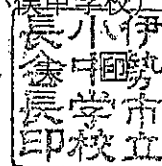 伊勢市立
小中学校
長長印
印